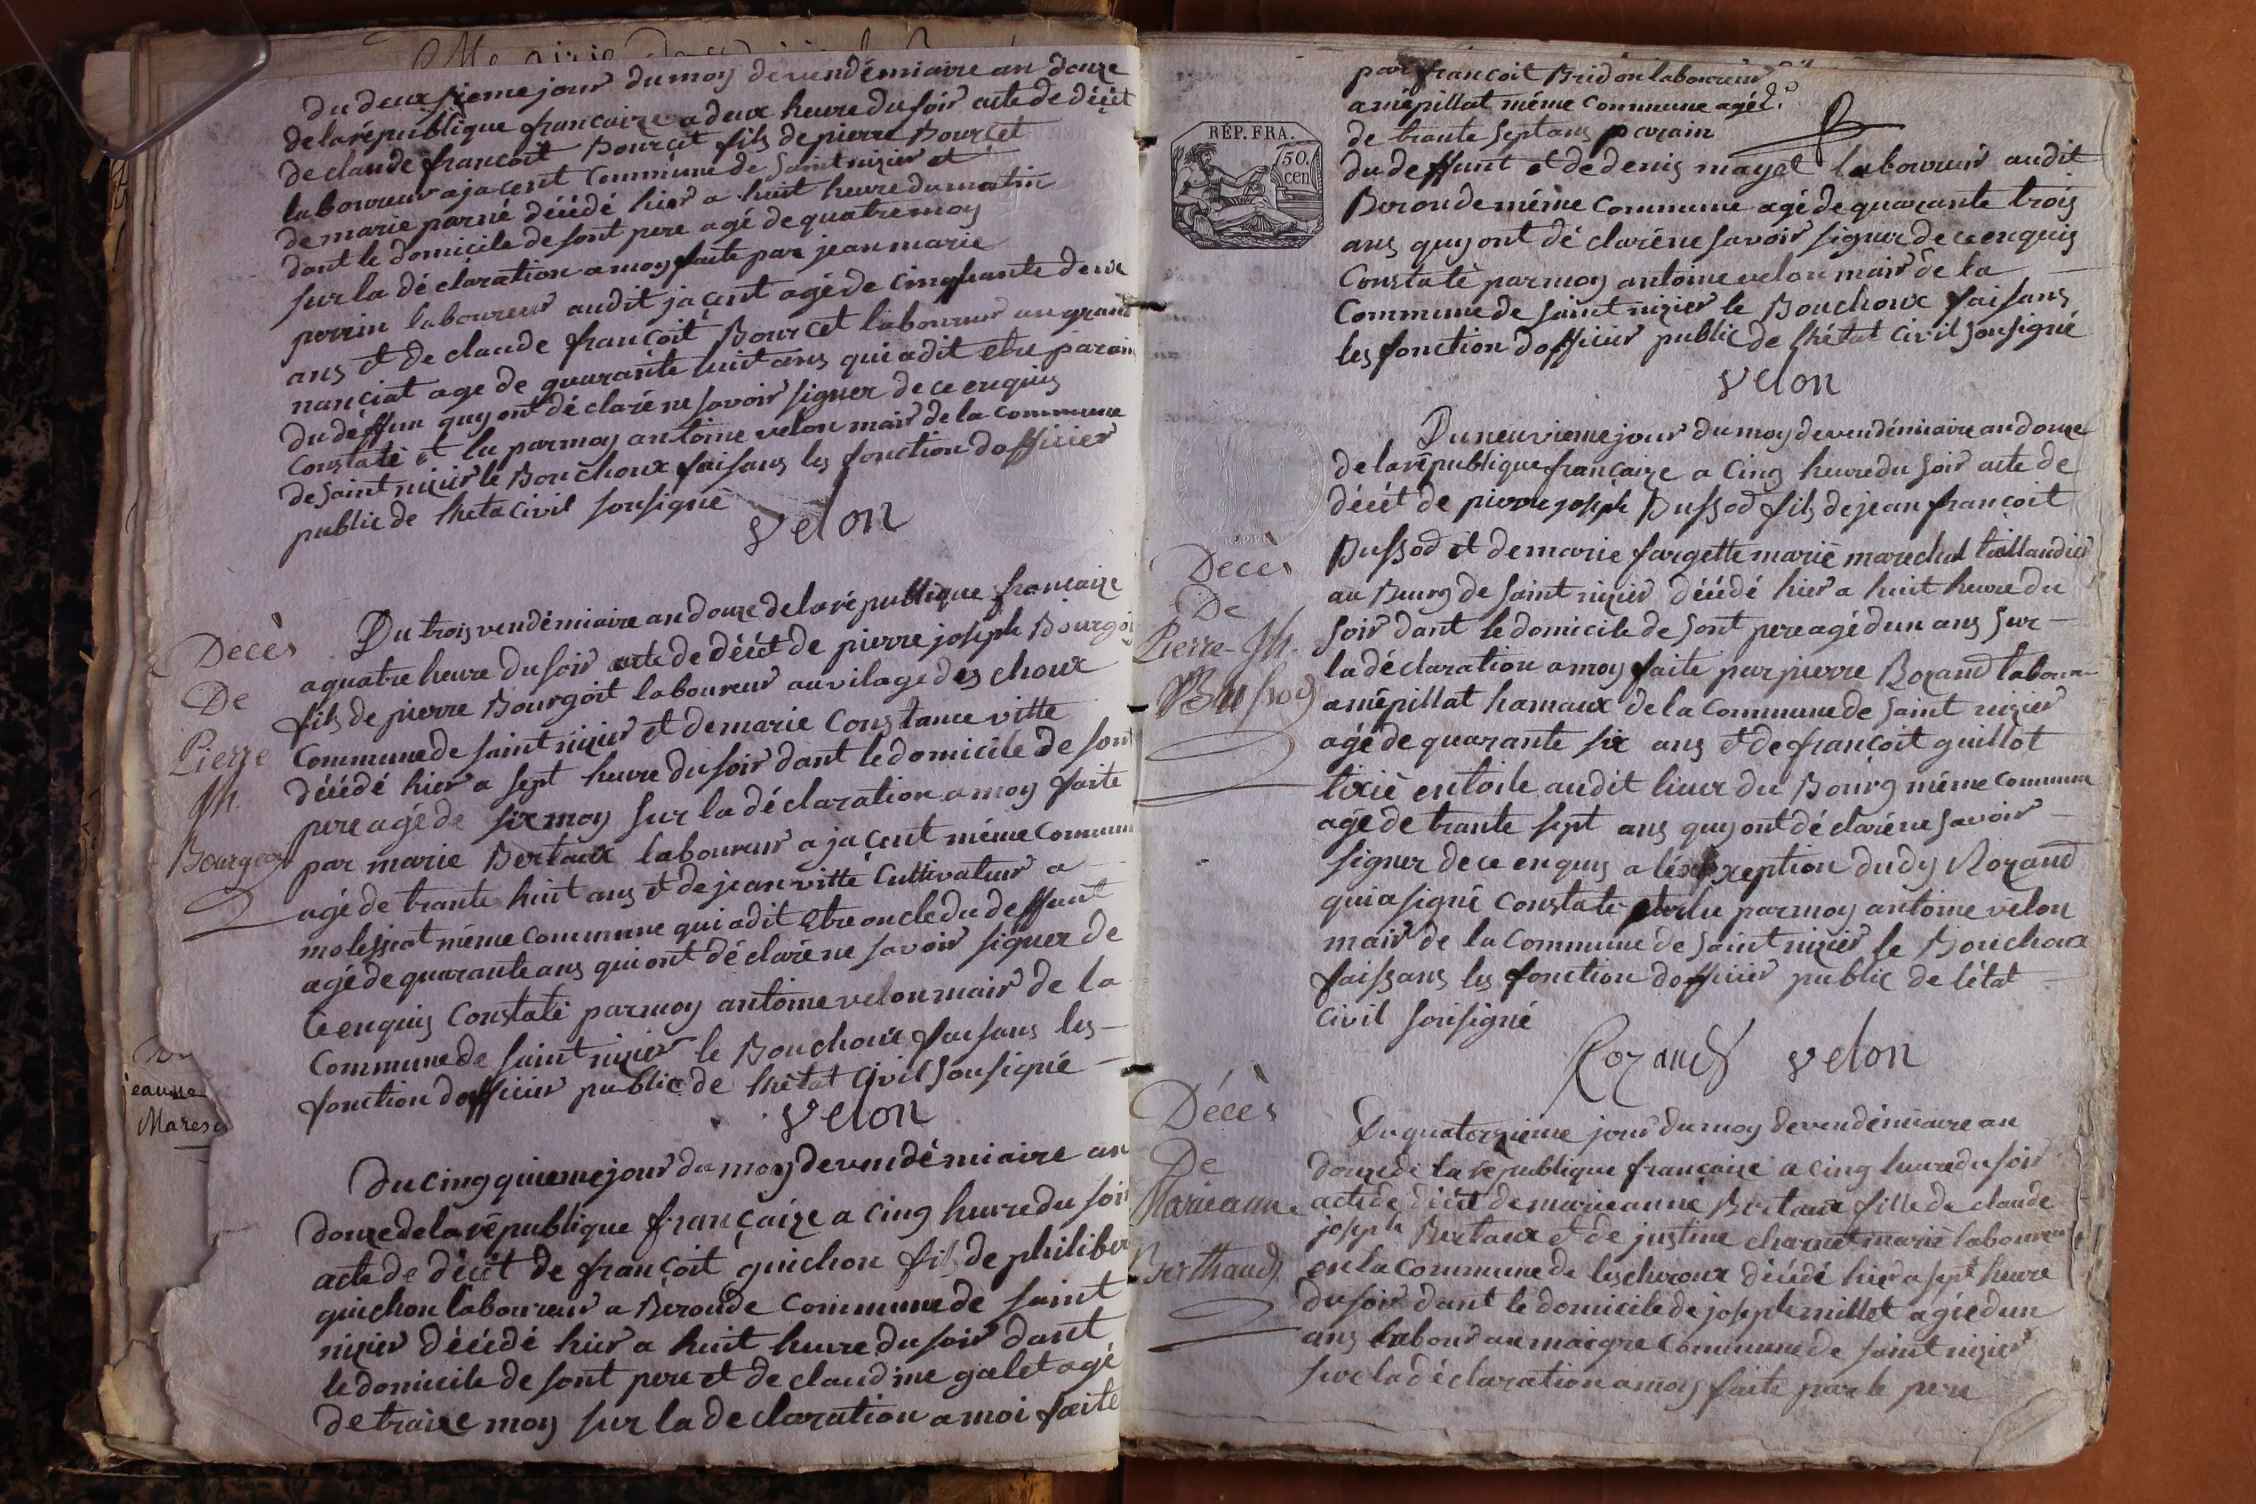 du deuxsieme jour du moy de vendémiaire an douze
de la république francaize a deux heure du soir acte de décèt
de claude francoit Bourcet fils de pierre Bourcet
laboureur a jacent commune de saint nizier et
de marie parné déédé hier a huit heure du matin
dant le domicile de sont pere agé de quatre moy
sur la déclaration a moy faite par jean marie
perrin laboureur audit jacent agé de cinquante deux
ans et de claude francoit Bourcet laboureur au grand
nanciat age de quarante huit ans qui a dit etre parain
du déffun quy ont déclaré ne savoir signer de ce enquis
constaté et lu par moy antoine velon mair de la commune
de saint nizier le Bouchoux faisans les fonction dofficier
public de lheta civil sousigné
velon
Décès
De
Pierre
Jh.
Bourgeois
Du trois vendémiaire an douze de la république francaize
a quatre heure du soir acte de décèt de pierre joseph Bourgoit
fils de pierre Bourgoit laboureur au vilage des choux
commune de saint nizier et de marie constance vitte
déédé hier a sept heure du soir dant le domicile de sont
pere agé de six moy sur la déclaration a moy faite
par marie Bertaux laboureur a jacent méme commune
agé de trante huit ans et de jean vitte cultivateur a
molissiat méme commune qui a dit etre oncle du deffunt
agé de quarante ans qui ont déclaré ne savoir signer de
ce enquis constaté par moy antoine velon mair de la
commune de saint nizier le Bouchoux faisans les
fonction dofficier public de lhétat civil sousigné
velon
jeanne
Mares
Du cinq quieme jour du moy de vendémiaire an
douze de la république françaize a cinq heure du soir
acte de décèt de françoit guichon fils de philiber
guichon laboureur a Beroude commune de saint
nizier déédé hier a huit heure du soir dant
le domicile de sont pere et de claudine galet agé
de traize moy sur la declaration a moi faite
par françoit Bridon laboureur
a mépillat méme commune agé
de trante sept ans parain
RÉP. FRA.
50. cen
du deffunt et de denis mayet laboureur audit
Beroude méme commune agé de quarante trois
ans quy ont déclaré ne savoir signer de ce enquis
Constaté par moy antoine velon mair de la
Commune de saint nizier le Bouchoux faisans
les fonction dofficier public de lhétat civil sousigné
velon
Décès
De
Pierre-Jh.
Bussod
Du neuvieme jour du moy de vendémiaire an douze
de la république françaize a cinq heure du soir acte de
décèt de pierre joseph Bussod fils de jean françoit
Bussod et de marie fargette marié marechal taillandier
au Bourg de saint nizier déédé hier a huit heure du
soir dant le domicile de sont pere agé dun ans sur
la déclaration a moy faite par pierre Rozand laboureur
a mépillat hamaux de la commune de saint nizier
agé de quarante six ans et de françoit guillot
tixié en toile audit lieux du Bourg méme commune
agé de trante sept ans quy ont déclaré ne savoir
signer de ce enquis a léxception dudy Rozand
qui a signé constaté et lu par moy antoine velon
mair de la commune de saint nizier le Bouchoux
faissans les fonction dofficier public de létat
civil sousigné
Rozand velon
Décès
De
Marieanne
Berthaud
Du quatorzieme jour du moy de vendémiaire an
douze de la république françaize a cinq heure du soir
acte de décèt de marieanne Bertaux fille de claude
joseph Bertaux et de justine charnet marié laboureur
en la commune de lescheroux déédé hier a sept heure
du soir dant le domicile de joseph millet agé dun
ans labour au maigre commune de saint nizier
sur la déclaration a moy faite par le pere